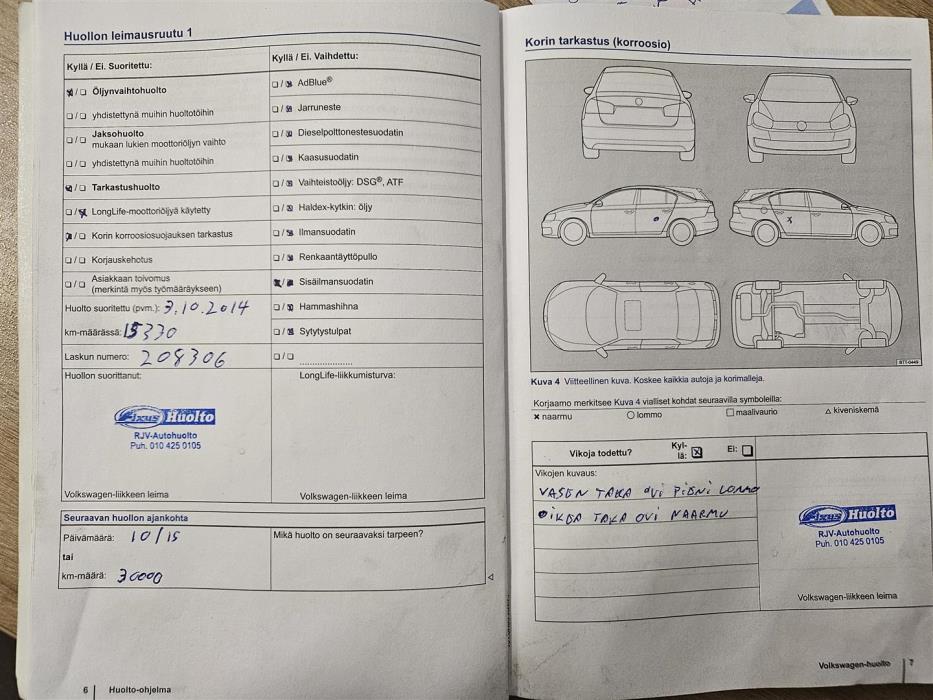 Huollon leimausruutu 1
Kyllä / Ei. Suoritettu:
Öljynvaihtohuolto
yhdistettynä muihin huoltotöihin
Jaksohuolto
mukaan lukien moottoriöljyn vaihto
yhdistettynä muihin huoltotöihin
Tarkastushuolto
LongLife-moottoriöljyä käytetty
Korin korroosiosuojauksen tarkastus
Korjauskehotus
Asiakkaan toivomus
(merkintä myös työmääräykseen)
Huolto suoritettu (pvm.): 3.10.2014
km-määrässä: 15330
Laskun numero: 208306
Huollon suorittanut:
Fixus Huolto
RJV-Autohuolto
Puh. 010 425 0105
Volkswagen-liikkeen leima
Kyllä / Ei. Vaihdettu:
AdBlue®
Jarruneste
Dieselpolttonestesuodatin
Kaasusuodatin
Vaihteistoöljy: DSG®, ATF
Haldex-kytkin: öljy
Ilmansuodatin
Renkaantäyttöpullo
Sisäilmansuodatin
Hammashihna
Sytytystulpat
LongLife-liikkumisturva:
Volkswagen-liikkeen leima
Seuraavan huollon ajankohta
Päivämäärä: 10/15
tai
km-määrä: 30000
Mikä huolto on seuraavaksi tarpeen?
6 | Huolto-ohjelma
Korin tarkastus (korroosio)
BTT-0449
Kuva 4 Viitteellinen kuva. Koskee kaikkia autoja ja korimalleja.
Korjaamo merkitsee Kuva 4 vialliset kohdat seuraavilla symboleilla:
× naarmu ○ lommo □ maalivaurio △ kiveniskemä
Vikoja todettu? Kyl-
lä: ☒ Ei: □
Vikojen kuvaus:
VASEN TAKA OVI PIENI LOMMO
OIKEA TAKA OVI NAARMU
Fixus Huolto
RJV-Autohuolto
Puh. 010 425 0105
Volkswagen-liikkeen leima
Volkswagen-huolto | 7